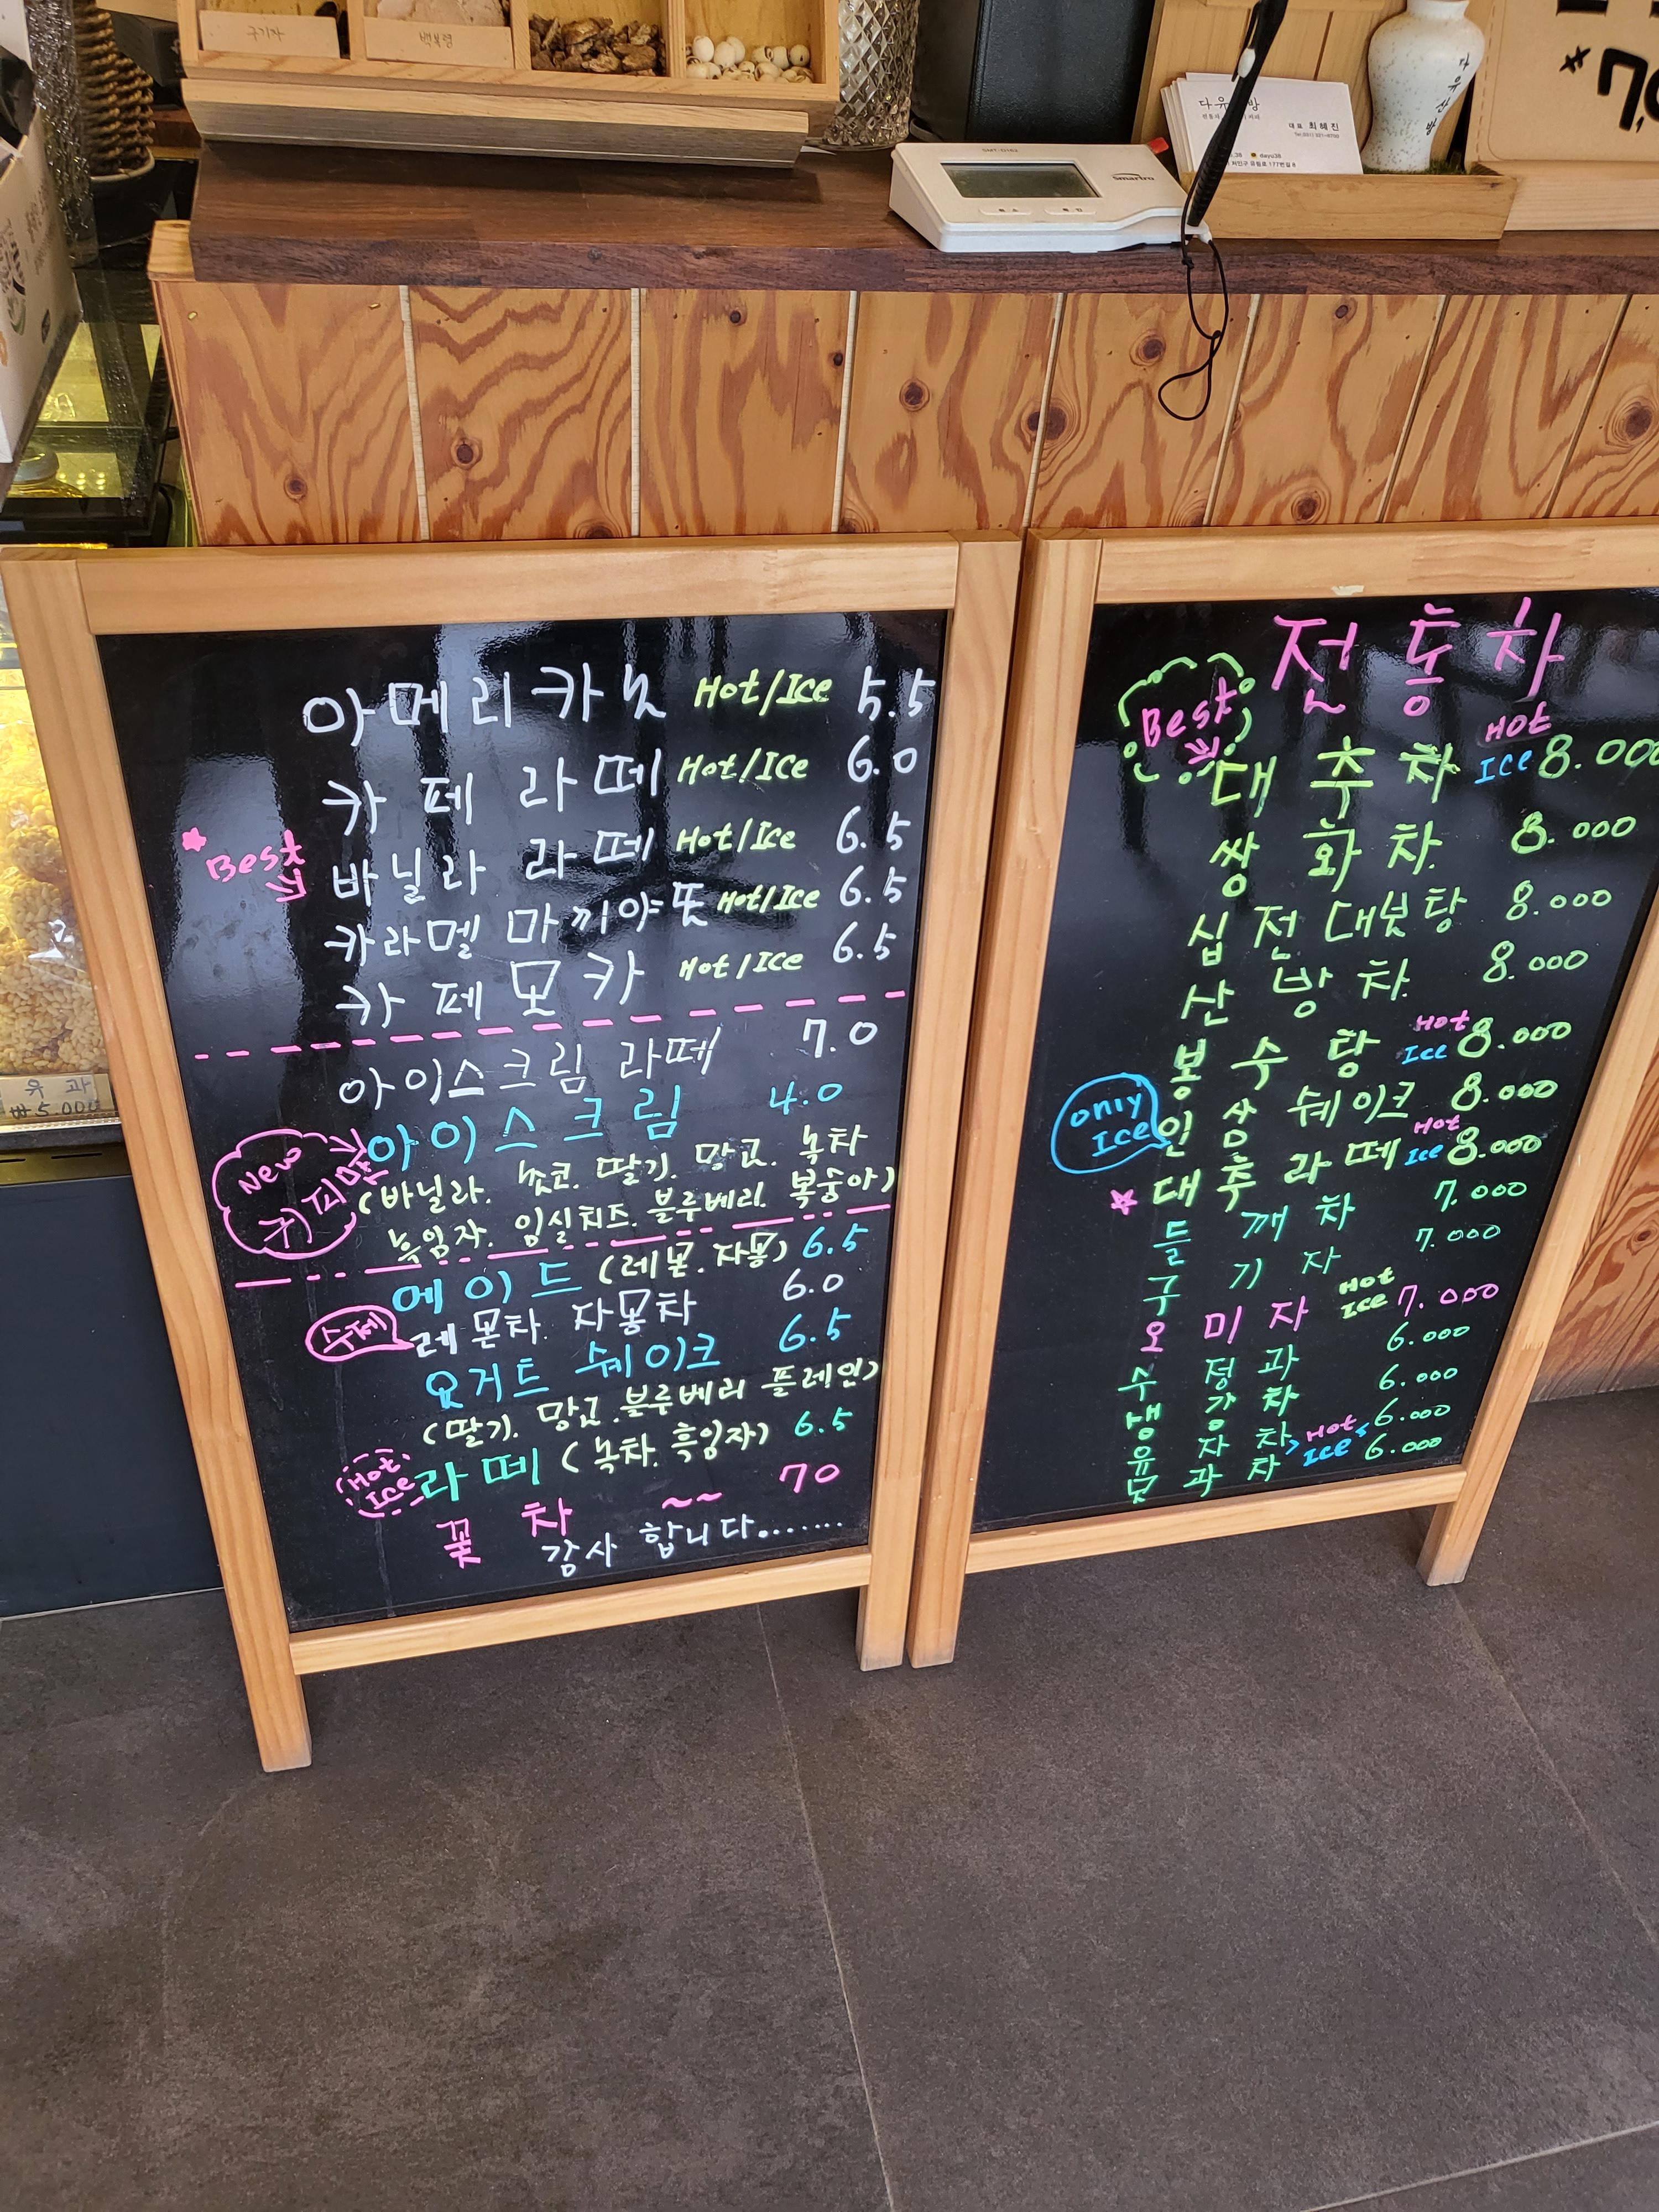 구기자
백복령
다유산방
대표 최혜진
처인구 유림로 177번길 8
dayu38
SMT-Q162
smartro
다유산방
유과
₩5.000
아메리카노 Hot/Ice 5.5
카페라떼 Hot/Ice 6.0
Best
바닐라 라떼 Hot/Ice 6.5
카라멜 마끼야또 Hot/Ice 6.5
카페모카 Hot/Ice 6.5
아이스크림 라떼 7.0
New
아이스크림 4.0
(바닐라. 쵸코. 딸기. 망고. 녹차
흑임자. 임실치즈. 블루베리. 복숭아)
에이드 (레몬.자몽) 6.5
수제
레몬차. 자몽차 6.0
요거트 쉐이크 6.5
(딸기. 망고.블루베리 플레인)
Hot Ice 라떼 (녹차. 흑임자) 6.5
꽃 차 ~~ 70
감사 합니다.......
전통차
Best
대추차 Hot Ice 8.000
쌍화차. 8.000
십전대보탕 8.000
산방차. 8.000
봉수탕 Hot Ice 8.000
only Ice
인삼 쉐이크 8.000
대추라떼 Hot Ice 8.000
들깨차 7.000
구기자 7.000
오미자 Hot Ice 7.000
수정과 6.000
생강차 6.000
유자차 Hot 6.000
모과차 Ice 6.000